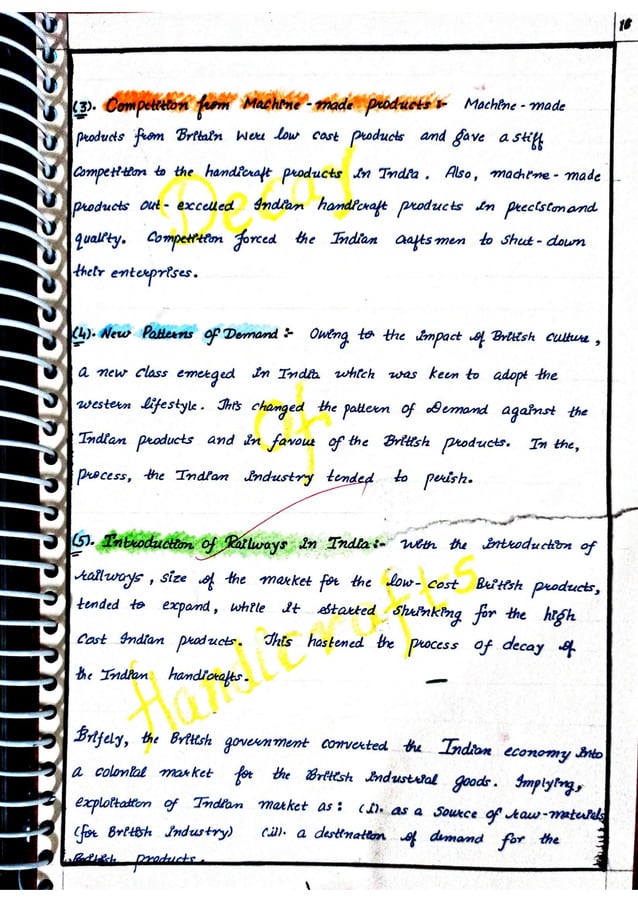 18
(3). Competition from Machine-made products:- Machine-made
products from Britain were low cost products and gave a stiff
Competition to the handicraft products in India. Also, machine-made
products out-excelled Indian handicraft products in precision and
quality. Competition forced the Indian craftsmen to shut-down
their enterprises.
(4). New Patterns of Demand:- Owing to the impact of British culture,
a new class emerged in India which was keen to adopt the
western lifestyle. This changed the pattern of Demand against the
Indian products and in favour of the British products. In the,
process, the Indian industry tended to perish.
(5). Introduction of Railways in India:- With the introduction of
railways, size of the market for the low-cost British products,
tended to expand, while it started shrinking for the high
cost Indian products. This hastened the process of decay of
the Indian handicrafts.
Brifely, the British government converted the Indian economy into
a colonial market for the British industrial goods. Implying,
exploitation of Indian market as: (i). as a source of raw-materials
(for British industry) (ii). a destination of demand for the
British products.
Decay
Of
Handicrafts